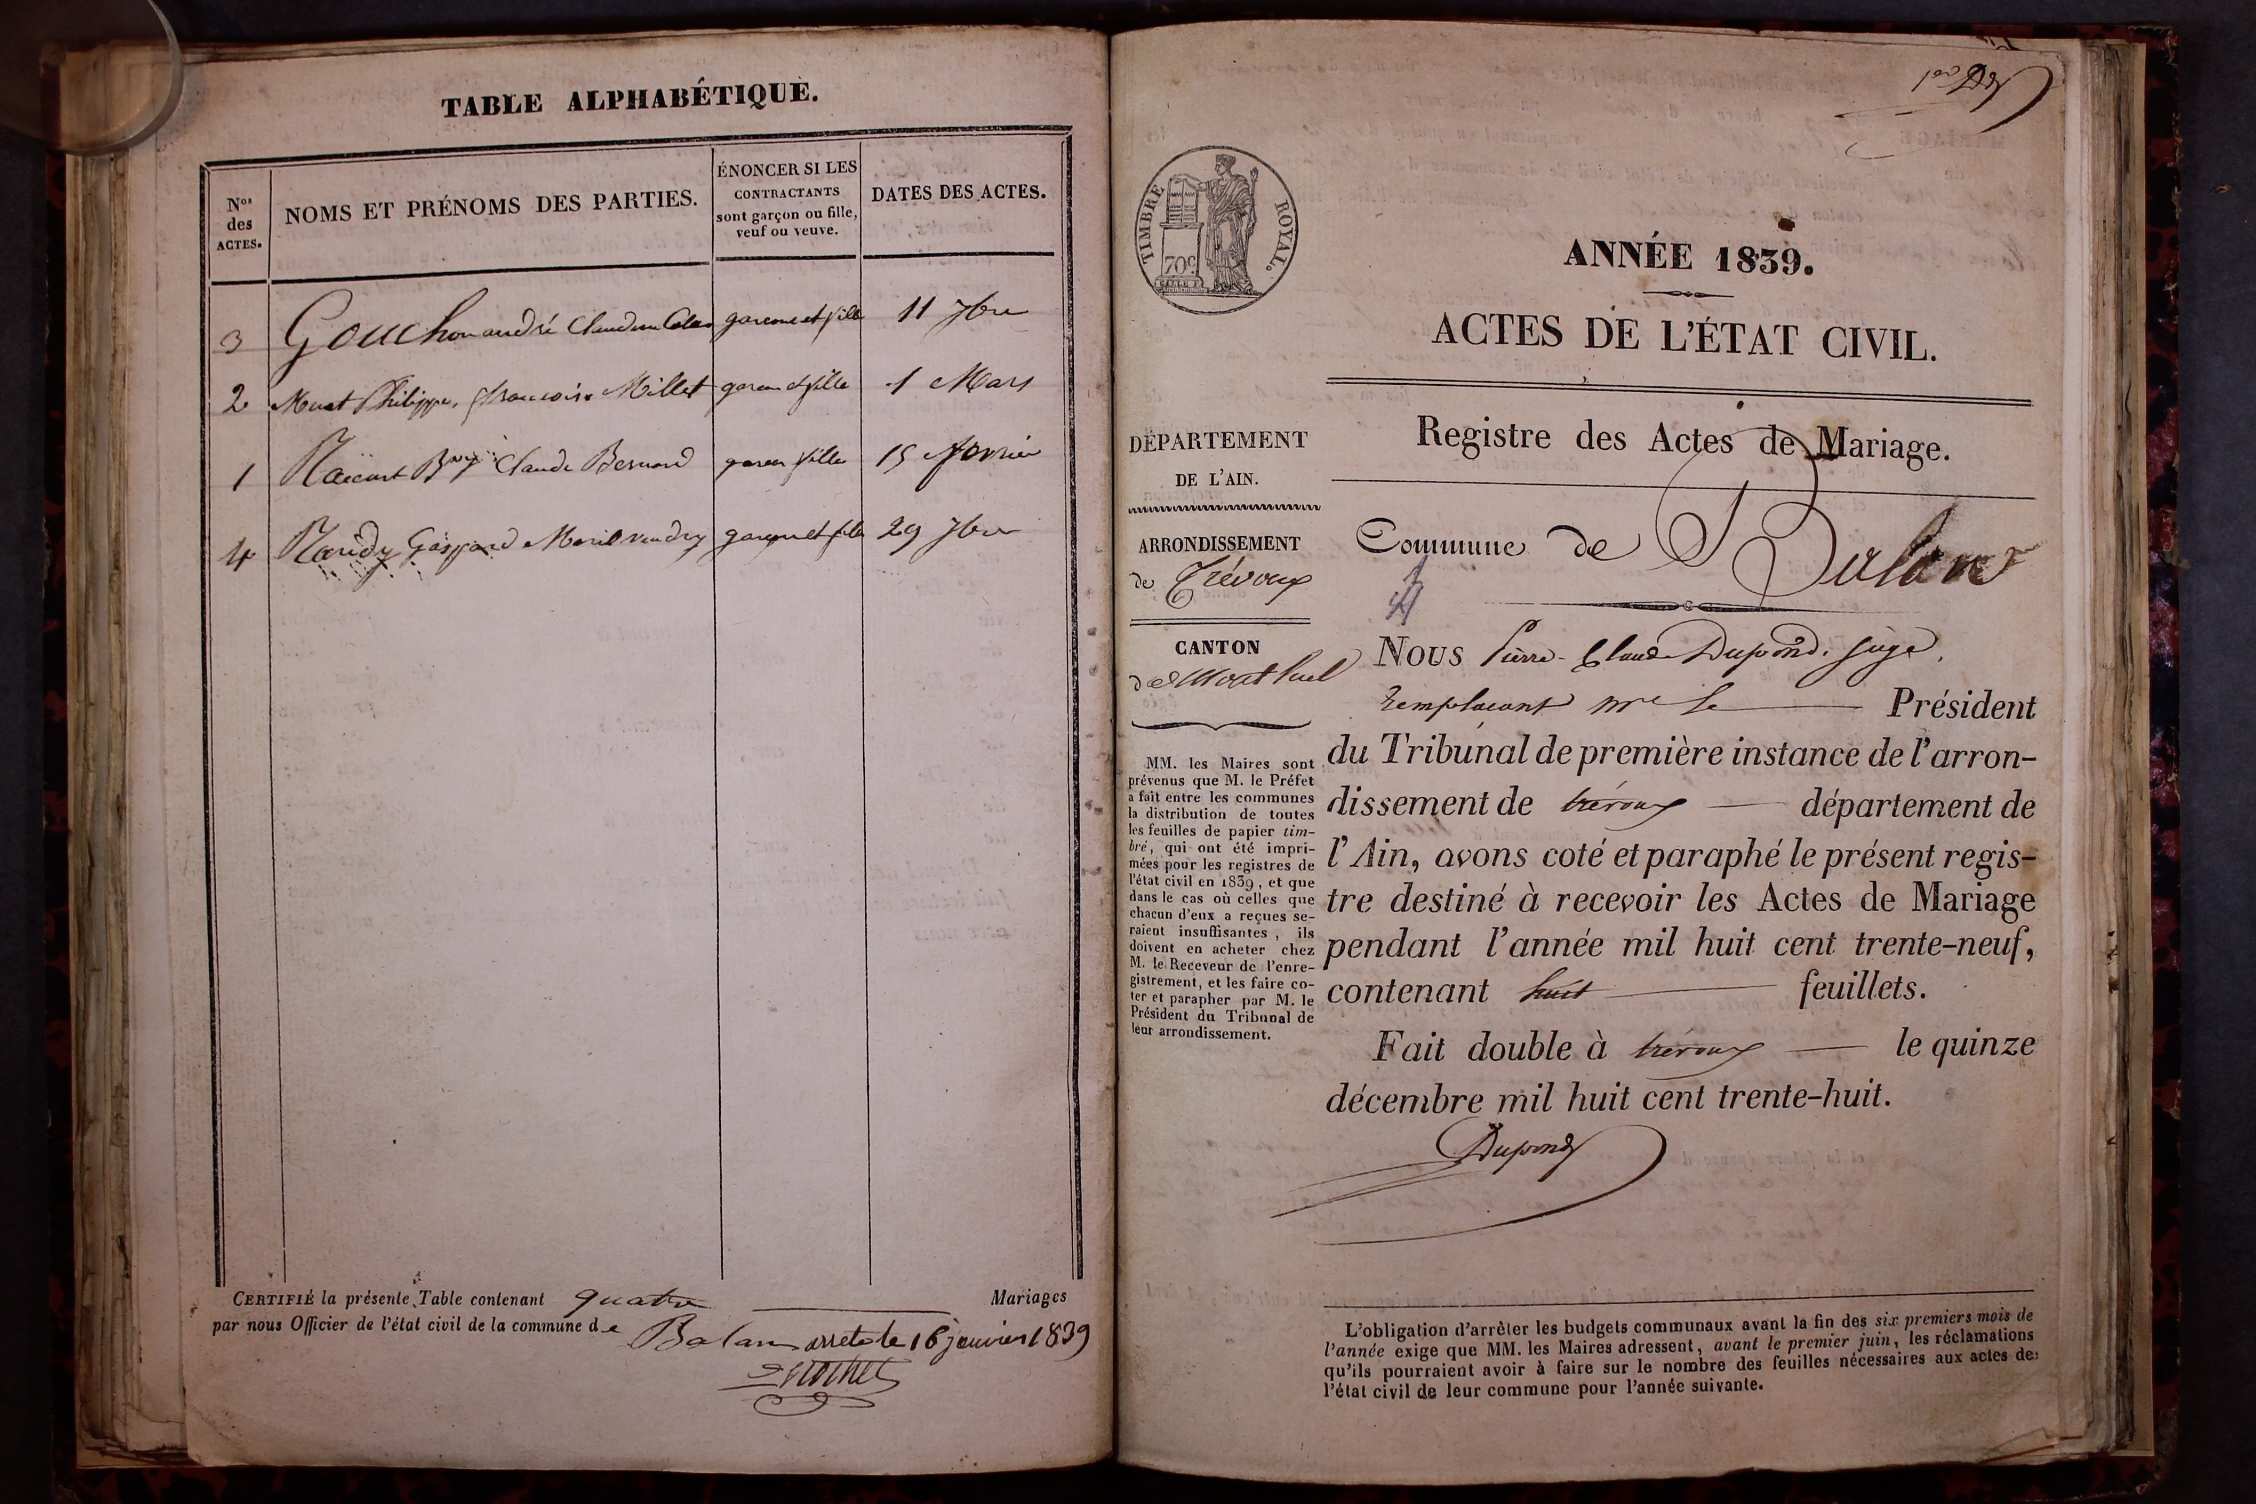 TABLE ALPHABÉTIQUE.
Nos des ACTES.
NOMS ET PRÉNOMS DES PARTIES.
ÉNONCER SI LES
CONTRACTANTS
sont garçon ou fille,
veuf ou veuve.
DATES DES ACTES.
3 Gouchon andré Claudine garcon et fille 11 7bre
2 Muet Philippe, françoise Millet garcon et fille 1 Mars
1 Claude Bernard garcon fille 15 fevrier
4 Gaspard garcon et fille 29 7bre
CERTIFIÉ la présente Table contenant quatre Mariages
par nous Officier de l'état civil de la commune de Balan arreté le 16 janvier 1839
1er
TIMBRE ROYAL.
70c
ANNÉE 1839.
ACTES DE L'ÉTAT CIVIL.
DÉPARTEMENT
DE L'AIN.
ARRONDISSEMENT
de Trévoux
CANTON
de Montluel
MM. les Maires sont
prévenus que M. le Préfet
a fait entre les communes
la distribution de toutes
les feuilles de papier tim-
bré, qui ont été impri-
mées pour les registres de
l'état civil en 1839, et que
dans le cas où celles que
chacun d'eux a reçues se-
raient insuffisantes, ils
doivent en acheter chez
M. le Receveur de l'enre-
gistrement, et les faire co-
ter et parapher par M. le
Président du Tribunal de
leur arrondissement.
Registre des Actes de Mariage.
Commune de Balan
Nous Pierre-Claude Dupond, juge,
remplaçant mr le Président
du Tribunal de première instance de l'arron-
dissement de trévoux département de
l'Ain, avons coté et paraphé le présent regis-
tre destiné à recevoir les Actes de Mariage
pendant l'année mil huit cent trente-neuf,
contenant huit feuillets.
Fait double à trévoux le quinze
décembre mil huit cent trente-huit.
Dupond
L'obligation d'arrêter les budgets communaux avant la fin des six premiers mois de
l'année exige que MM. les Maires adressent, avant le premier juin, les réclamations
qu'ils pourraient avoir à faire sur le nombre des feuilles nécessaires aux actes de
l'état civil de leur commune pour l'année suivante.